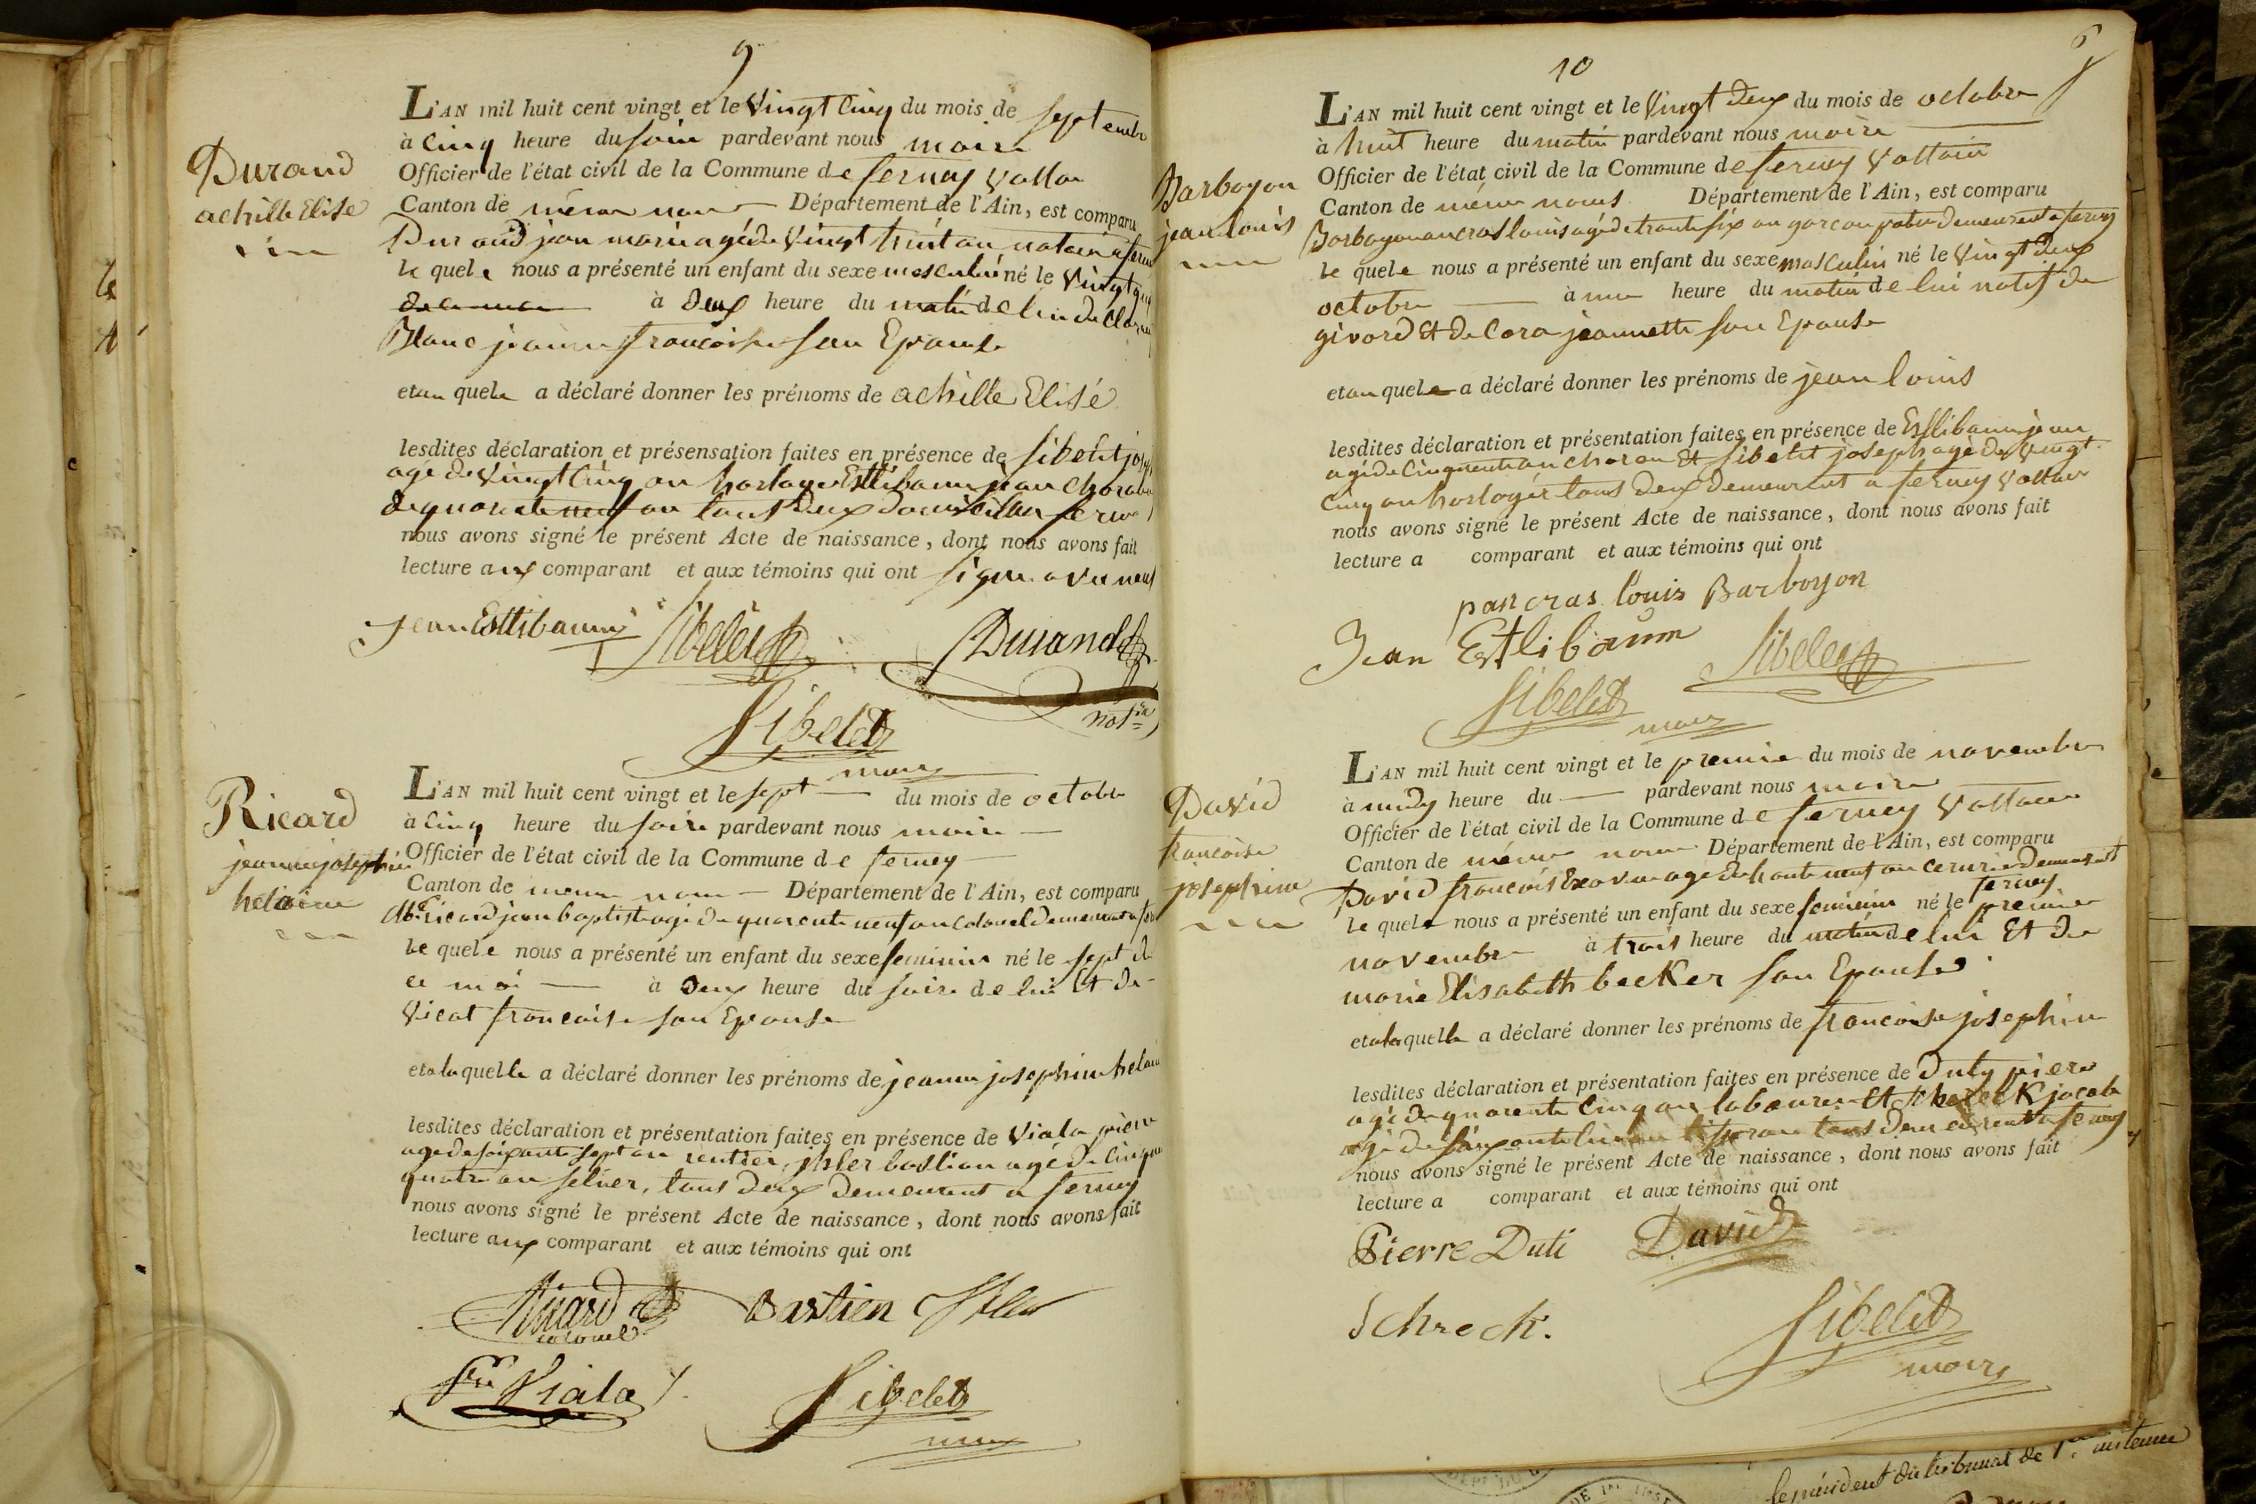 9
L'AN mil huit cent vingt et le vingt cinq du mois de septembre
à cinq heure du soir pardevant nous maire
Officier de l'état civil de la Commune de ferney Voltaire
Canton de même nom Département de l'Ain, est comparu
Durand jean marie agé de vingt huit an notaire a ferney
le quel e nous a présenté un enfant du sexe masculin né le vingt
à deux heure du matin de lui de
Blanc jeanne francoise son Epouse
et au quele a déclaré donner les prénoms de achille Elisé
lesdites déclaration et présensation faites en présence de sibelit
agé de vingt cinq an horloger Estlibaum jean
de quarante neuf an tout deux ferney
nous avons signé le présent Acte de naissance, dont nous avons fait
lecture aux comparant et aux témoins qui ont signé avec nous
Durand
achille Elise
Jean Estlibaum Sibelit Durand
notre
Sibelit
maire
Ricard
jeanne josephine
helaine
L'AN mil huit cent vingt et le sept du mois de octobre
à cinq heure du soire pardevant nous maire
Officier de l'état civil de la Commune de ferney
Canton de meme nom Département de l'Ain, est comparu
Mr ricard jean baptiste agé de quarente neuf an colonel demeurant a
le quel e nous a présenté un enfant du sexe feminin né le sept de
ce moi à deux heure du soire de lui et de
Vicat francoise son Epouse
et a laquelle a déclaré donner les prénoms de jeanne josephine helaine
lesdites déclaration et présentation faites en présence de Viala piere
agé de soixante sept an rentier, bastian agé de
quatre an selier, tous deux demeurant a ferney
nous avons signé le présent Acte de naissance, dont nous avons fait
lecture aux comparant et aux témoins qui ont
Ricard Bastien
colonel
Viala Sibelit
maire
10
6
L'AN mil huit cent vingt et le vingt deux du mois de octobre
à huit heure du matin pardevant nous maire
Officier de l'état civil de la Commune de ferney Voltaire
Canton de même noms Département de l'Ain, est comparu
Barboyon louis agé de trante six an garcon demeurent a ferney
le quel e nous a présenté un enfant du sexe masculin né le vingt deux
octobre à une heure du matin de lui natif de
givord et de Cora jeannette son Epouse
et au quele a déclaré donner les prénoms de jean louis
lesdites déclaration et présentation faites en présence de Estlibaum jean
agé de cinquente an et sibelit joseph agé de vingt
cinq an horloger tous deux demeurent a ferney voltaire
nous avons signé le présent Acte de naissance, dont nous avons fait
lecture a comparant et aux témoins qui ont
Barboyon
jean louis
pancras louis Barboyon
Jean Estlibaum Sibelit
Sibelit
maire
David
francoise
josephine
L'AN mil huit cent vingt et le premie du mois de novembre
à midy heure du pardevant nous maire
Officier de l'état civil de la Commune de ferney Voltaire
Canton de même nom Département de l'Ain, est comparu
David francois agé de trante neuf an demeurant
ferney
le quel e nous a présenté un enfant du sexe feminin né le premier
novembre à trois heure du matin de lui Et de
marie Elisabeth becker son Epouse
et a la quelle a déclaré donner les prénoms de francoise josephine
lesdites déclaration et présentation faites en présence de Duty piere
agé de quarente cinq an laboureur Et jacob
agé de soixante an tous demeurent a ferney
nous avons signé le présent Acte de naissance, dont nous avons fait
lecture a comparant et aux témoins qui ont
Pierre Duti David
Schreck.
Sibelit
maire
le président du tribunal de 1ère instance